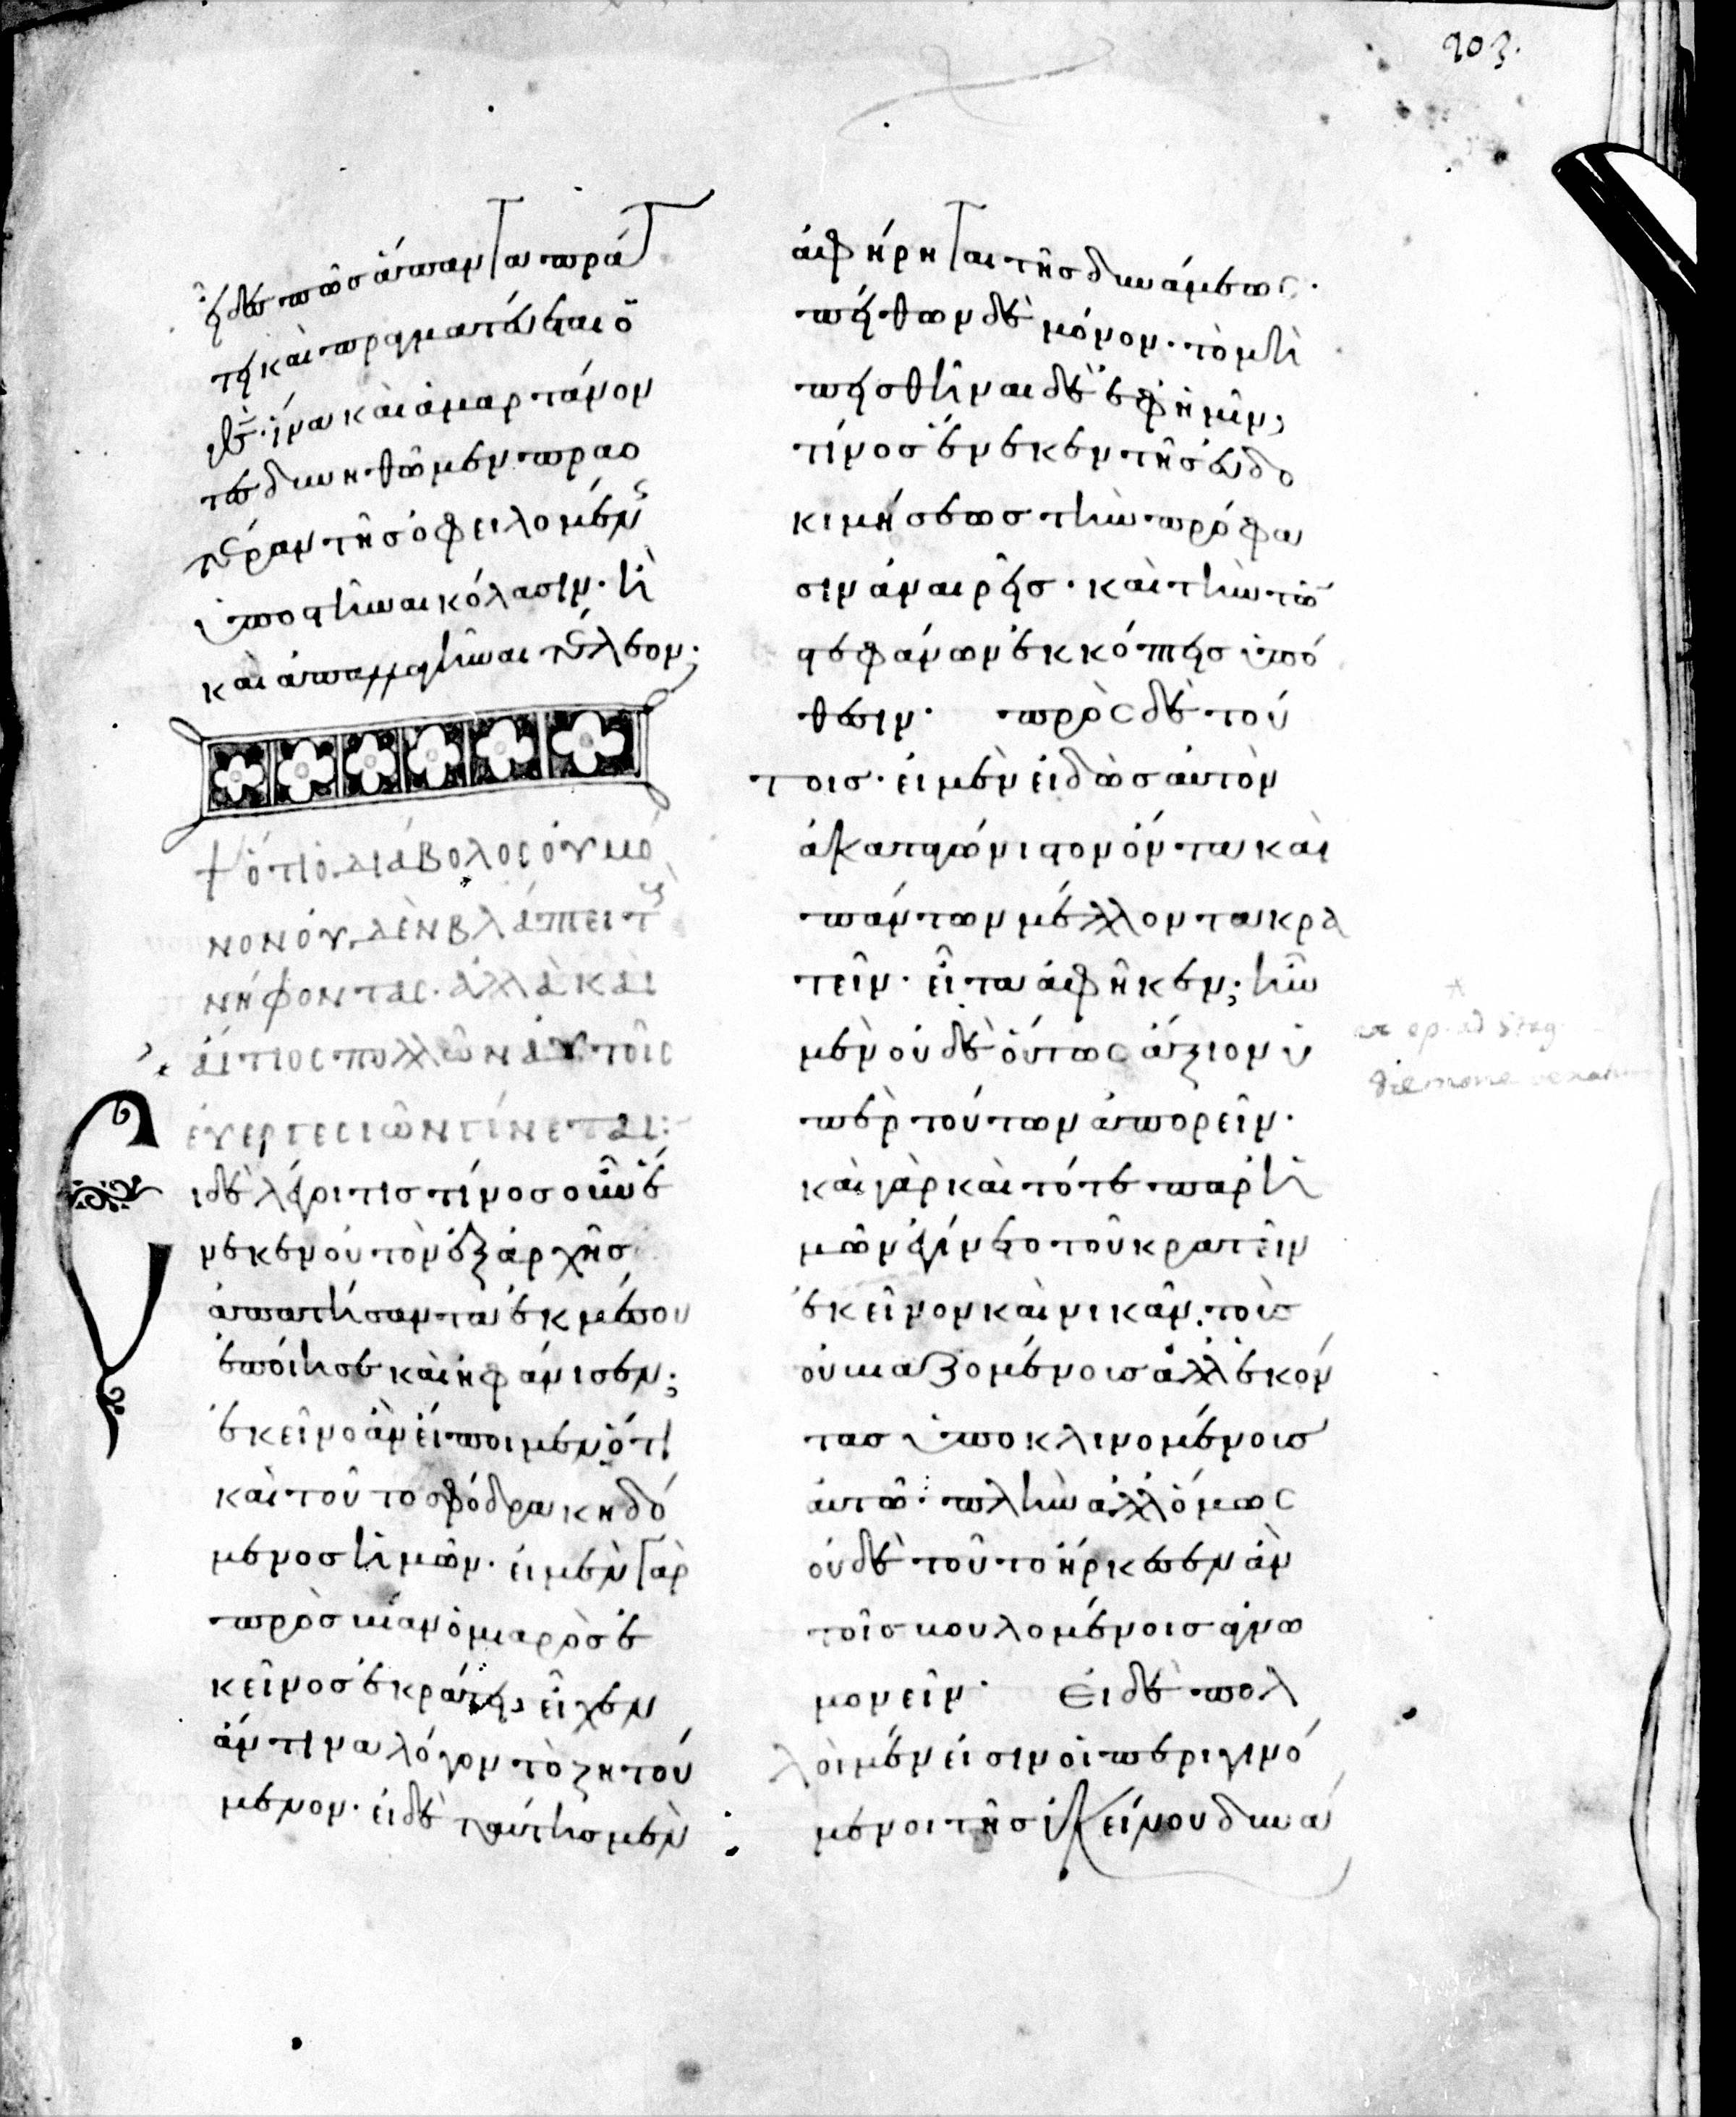 203.
εἶδες πῶς ἅπαντα πράτ
τει καὶ πραγματεύεται ὁ
θς̄· ἵνα καὶ ἁμαρτάνον
τες δυνηθῶμεν πραο
τέραν τῆς ὀφειλομένης
ὑποστῆναι κόλασιν· ἢ
καὶ ἀπαλλαγῆναι τέλεον;
ὅτι ὁ διάβολος οὐ μό
νον οὐδὲν βλάπτει τοὺς
νήφοντας· ἀλλὰ καὶ
αἴτιος πολλῶν αὐτοῖς
εὐεργεσιῶν γίνεται:
Εἰ δὲ λέγοι τις τίνος οὖν ἕ
νεκεν οὐ τὸν ἐξ ἀρχῆς
ἀπατήσαντα ἐκ μέσου
ἐποίησε καὶ ἠφάνισεν;
ἐκεῖνο ἂν εἴποιμεν ὅτι
καὶ τοῦτο σφόδρα κηδό
μενος ἡμῶν· εἰ μὲν γὰρ
πρὸς βίαν ὁ μιαρὸς ἐ
κεῖνος ἐκράτει, εἶχεν
ἄν τινα λόγον τὸ ζητού
μενον· εἰ δὲ ταύτης μὲν
ἀφήρηται τῆς δυνάμεως·
πείθων δὲ μόνον· τὸ μὴ
πεισθῆναι δὲ ἐφ' ἡμῖν;
τίνος ἕνεκεν τῆς εὐδο
κιμήσεως τὴν πρόφα
σιν ἀναιρεῖς· καὶ τὴν τῶν
στεφάνων ἐκκόπτεις ὑπό
θεσιν· πρὸς δὲ τού
τοις· εἰ μὲν εἰδὼς αὐτὸν
ἀκαταγώνιστον ὄντα καὶ
πάντων μέλλοντα κρα
τεῖν· εἶτα ἀφῆκεν; ἦν
μὲν οὐδὲ οὕτως ἄξιον ὑ
πὲρ τούτων ἀπορεῖν·
καὶ γὰρ καὶ τότε παρ' ἡ
μῶν ἐγίνετο τοῦ κρατεῖν
ἐκεῖνον καὶ νικᾶν· τοῖς
οὐ βιαζομένοις ἀλλ' ἑκόν
τας ὑποκλινομένοις
αὐτῶ· πλὴν ἀλλ' ὅμως
οὐδὲ τοῦτο ἤρκεσεν ἂν
τοῖς βουλομένοις ἀγνω
μονεῖν· Εἰ δὲ πολ
λοὶ μέν εἰσιν οἱ περιγινό
μενοι τῆς ἐκείνου δυνά